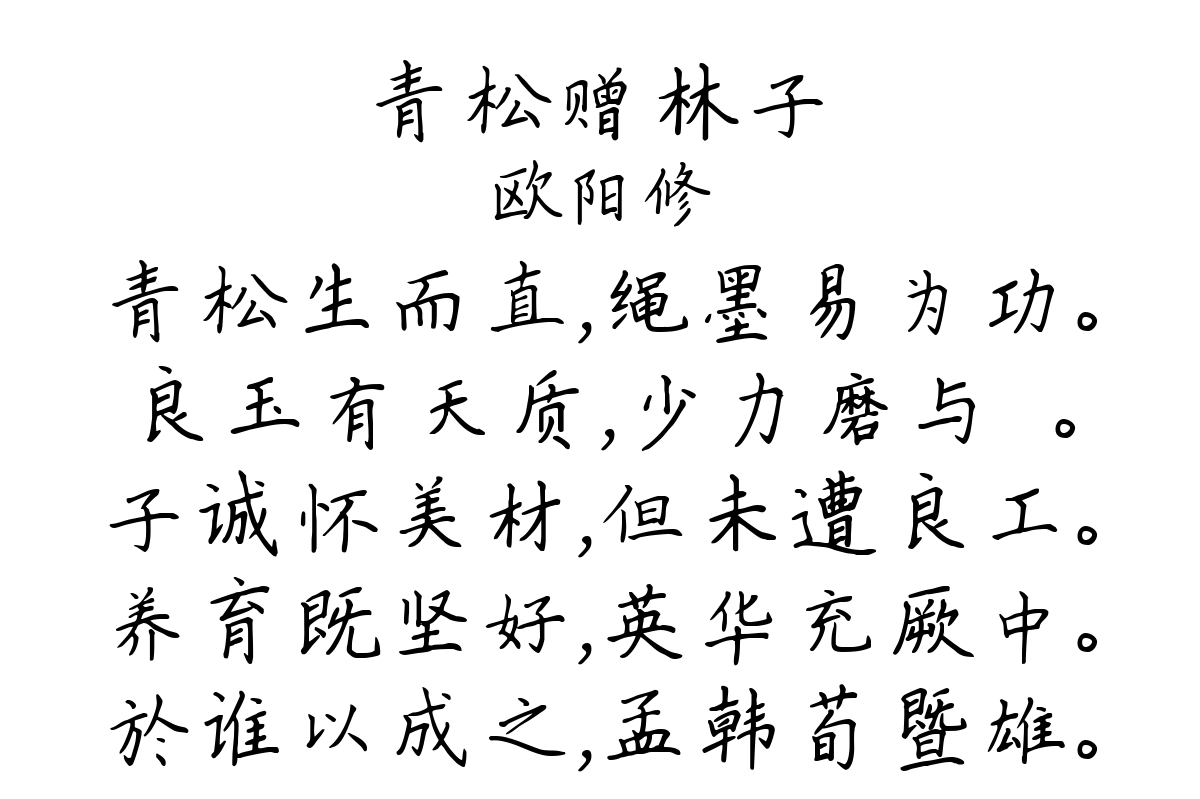 青松赠林子
欧阳修
青松生而直,绳墨易为功。
良玉有天质,少力磨与 。
子诚怀美材,但未遭良工。
养育既坚好,英华充厥中。
於谁以成之,孟韩荀暨雄。